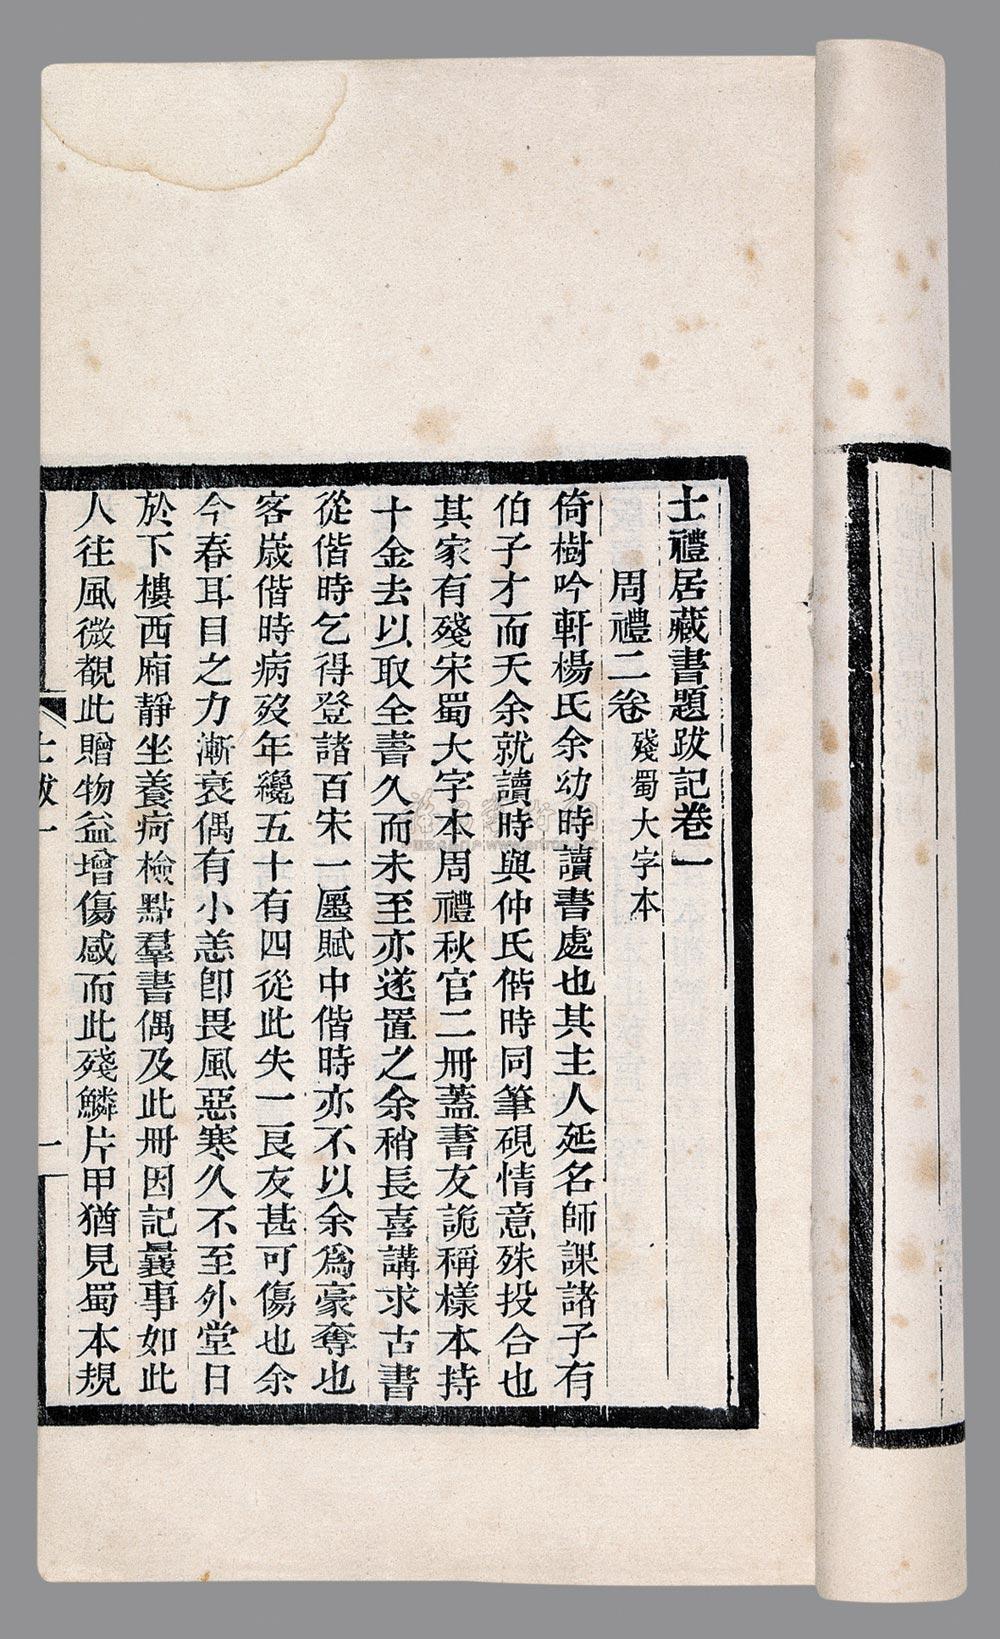 士禮居藏書題跋記卷一
周禮二卷 殘蜀大字本
倚樹吟軒楊氏余幼時讀書處也其主人延名師課諸子有
伯子才而夭余就讀時與仲氏偕時同筆硯情意殊投合也
其家有殘宋蜀大字本周禮秋官二冊蓋書友詭稱樣本持
十金去以取全書久而未至亦遂置之余稍長喜講求古書
從偕時乞得登諸百宋一廛賦中偕時亦不以余為豪奪也
客嵗偕時病歿年纔五十有四從此失一良友甚可傷也余
今春耳目之力漸衰偶有小恙卽畏風惡寒久不至外堂日
於下樓西廂靜坐養疴檢點羣書偶及此冊因記曩事如此
人往風微覩此贈物益增傷感而此殘鱗片甲猶見蜀本規
士跋一
一